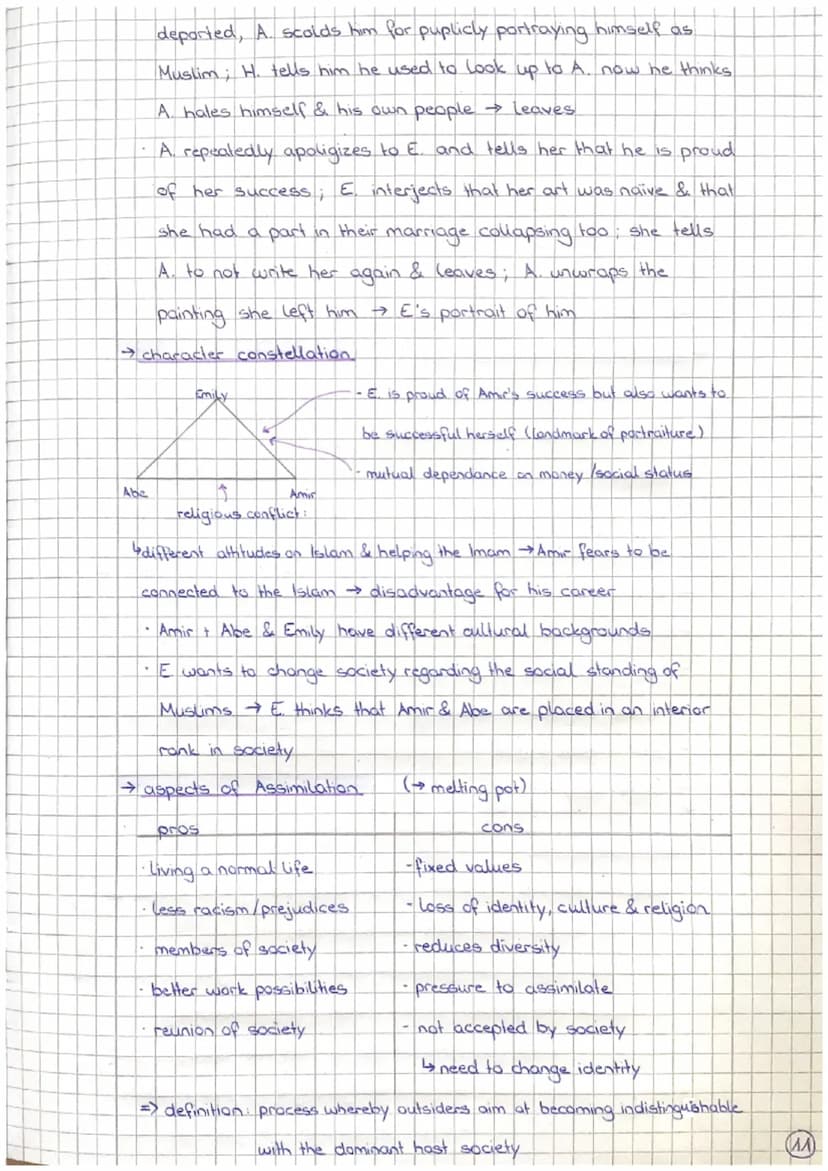 deported, A. scolds him for puplicly portraying himself as
Muslim; H. tells him he used to look up to A. now he thinks
A. hates himself & his own people → leaves
· A. repeatedly apoligizes to E. and tells her that he is proud
of her success; E. interjects that her art was naive & that
she had a part in their marriage collapsing too; she tells
A. to not write her again & leaves; A. unwraps the
painting she left him → E's portrait of him
→ character constellation
Emily
- E. is proud of Amir's success but also wants to
be successful herself (landmark of portraiture)
- mutual dependance on money /social status
Abe
Amir
religious conflict:
↳different attitudes on Islam & helping the Imam → Amir fears to be
connected to the Islam → disadvantage for his career
· Amir + Abe & Emily have different cultural backgrounds
· E wants to change society regarding the social standing of
Muslims → E. thinks that Amir & Abe are placed in an interior
rank in society
→ aspects of Assimilation (→ melting pot)
pros cons
· living a normal life - fixed values
· less racism/prejudices - loss of identity, culture & religion
· members of society - reduces diversity
· better work possibilities - pressure to assimilate
· reunion of society - not accepted by society
↳ need to change identity
=> definition: process whereby outsiders aim at becoming indistinguishable
with the dominant host society
11